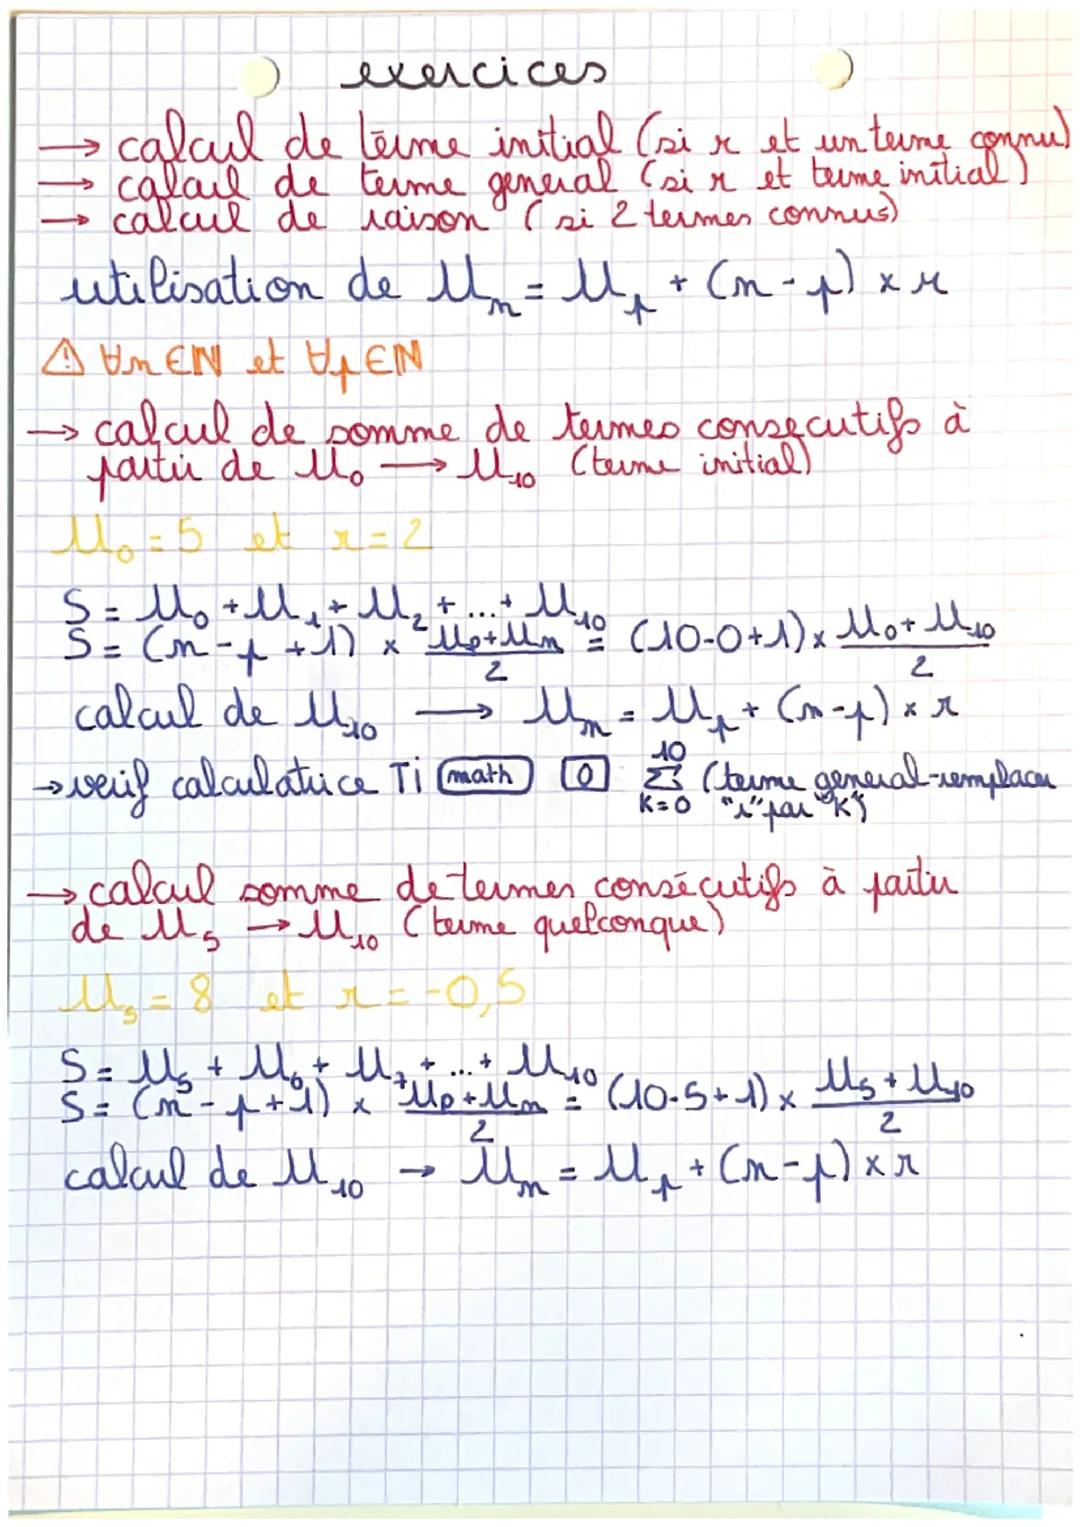 exercices
→ calcul de terme initial (si r et un terme connu)
→ calcul de terme general (si r et terme initial)
→ calcul de raison (si 2 termes connus)
utilisation de Un = Up + (n-p) × r
⚠ ∀n ∈ ℕ et ∀p ∈ ℕ
→ calcul de somme de termes consecutifs à
partir de U0 → U10 (terme initial)
U0 = 5 et r = 2
S = U0 + U1 + U2 + ... + U10
S = (n-p+1) × (Up+Un)/2 = (10-0+1) × (U0+U10)/2
calcul de U10 → Un = Up + (n-p) × r
→ verif calculatrice Ti math 0 10 Σ K=0 (terme general-remplacer
"r" par "K")
→ calcul somme de termes consécutifs à partir
de U5 → U10 (terme quelconque)
U5 = 8 et r = -0,5
S = U5 + U6 + U7 + ... + U10
S = (n-p+1) × (Up+Un)/2 = (10-5+1) × (U5+U10)/2
calcul de U10 → Un = Up + (n-p) × r